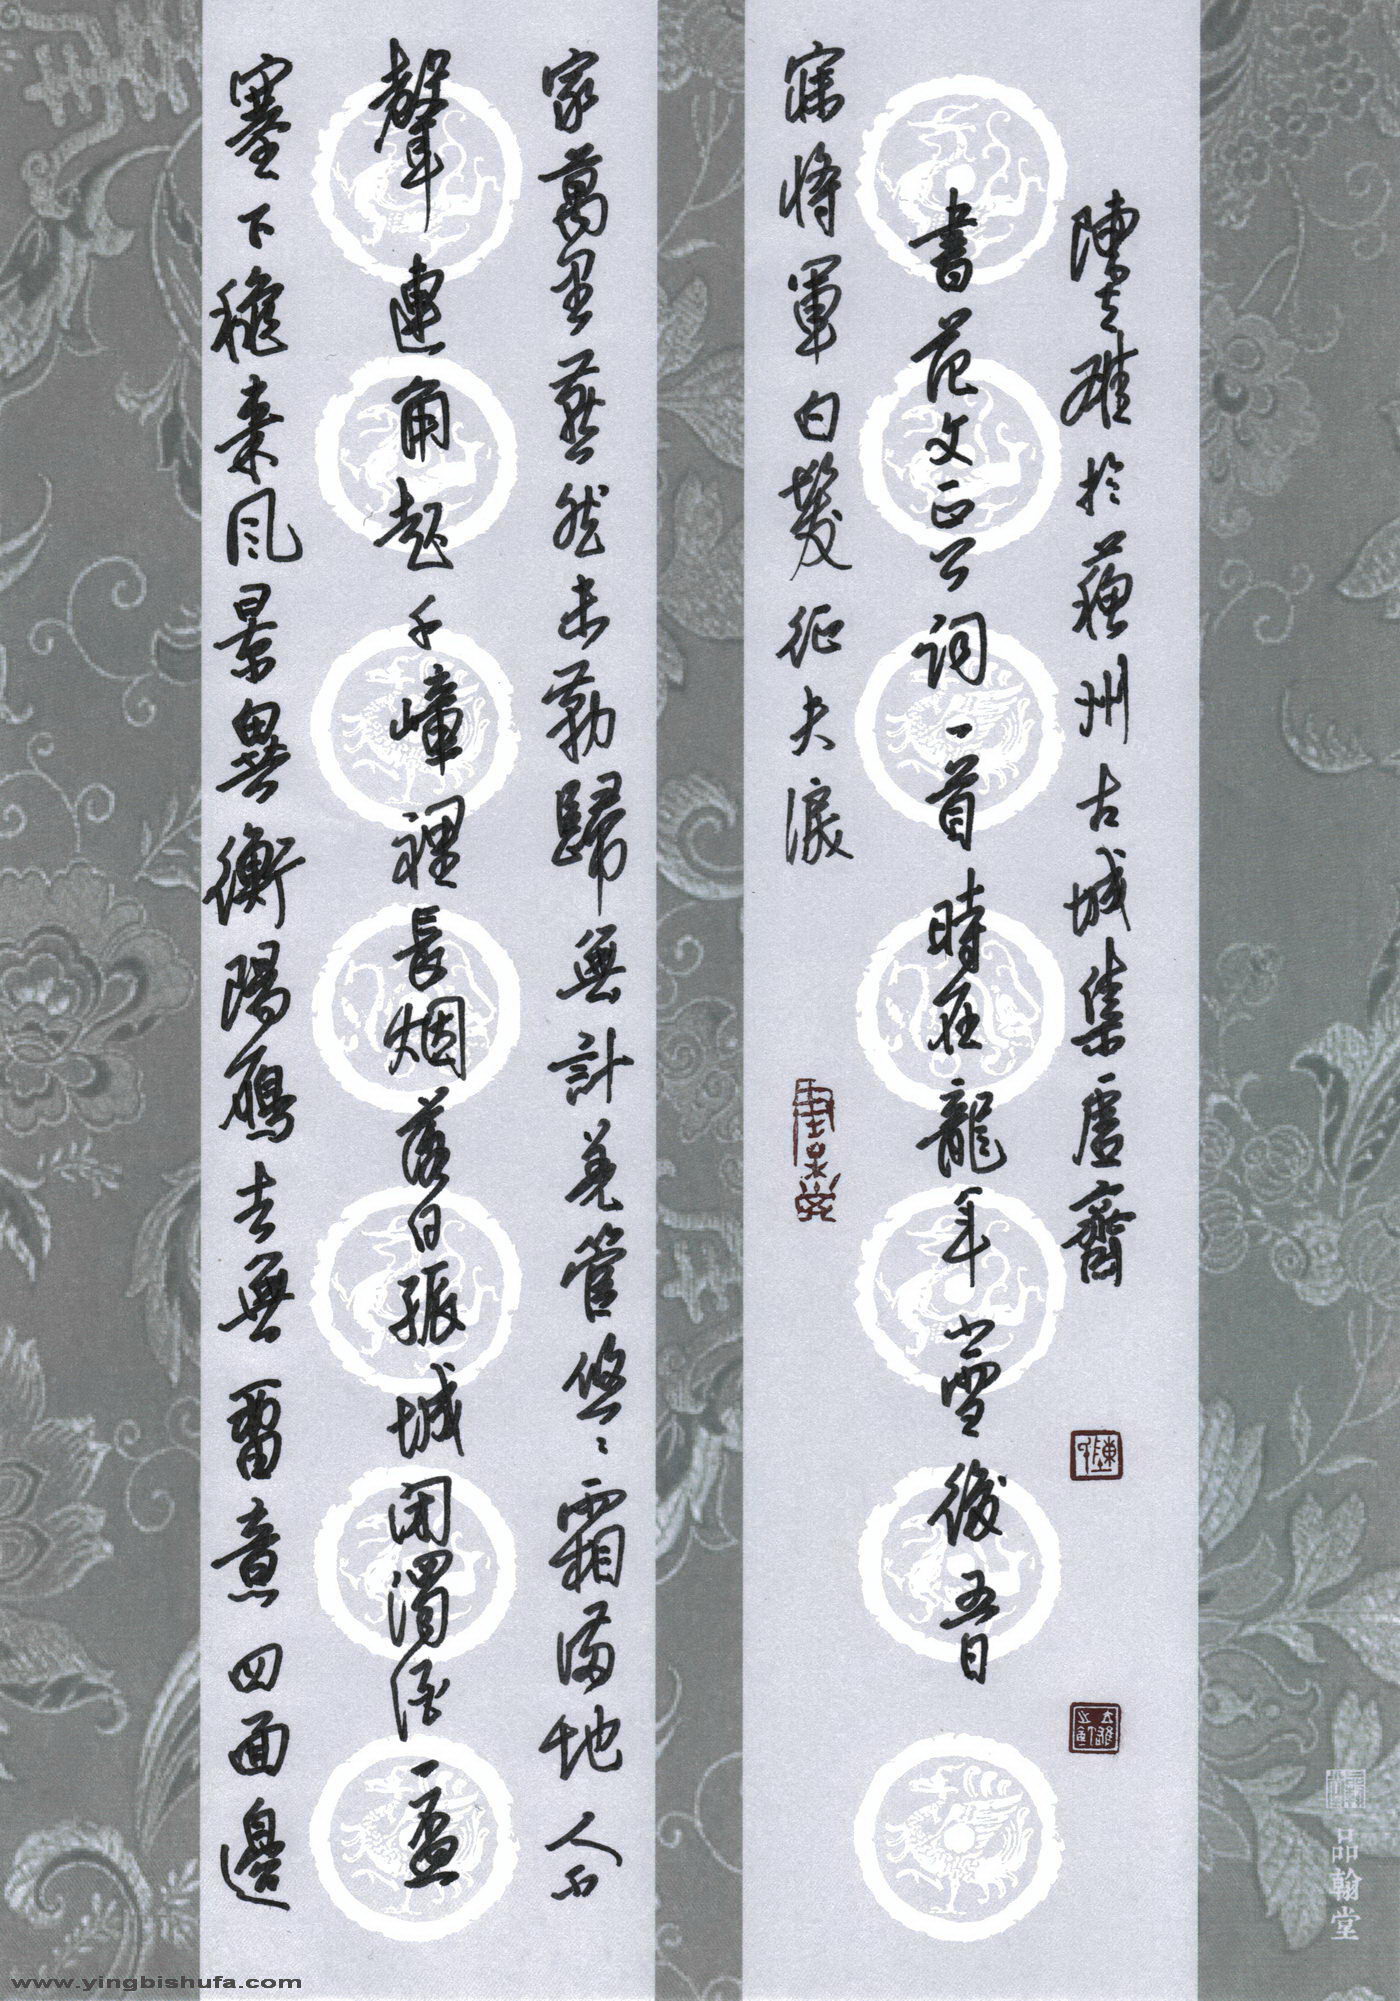 塞下穐來風景異衡陽鴈去無畱意四面邊
聲連角起千嶂裡長烟落日孤城閉濁酒一盃
家萬里燕然未勒歸無計羌管悠〻霜滿地人不
寐將軍白髮征夫淚
書范文正公詞一首時在龍年小雪後五日
雄於蘇州古城集虛齋
品翰堂
www.yingbishufa.com